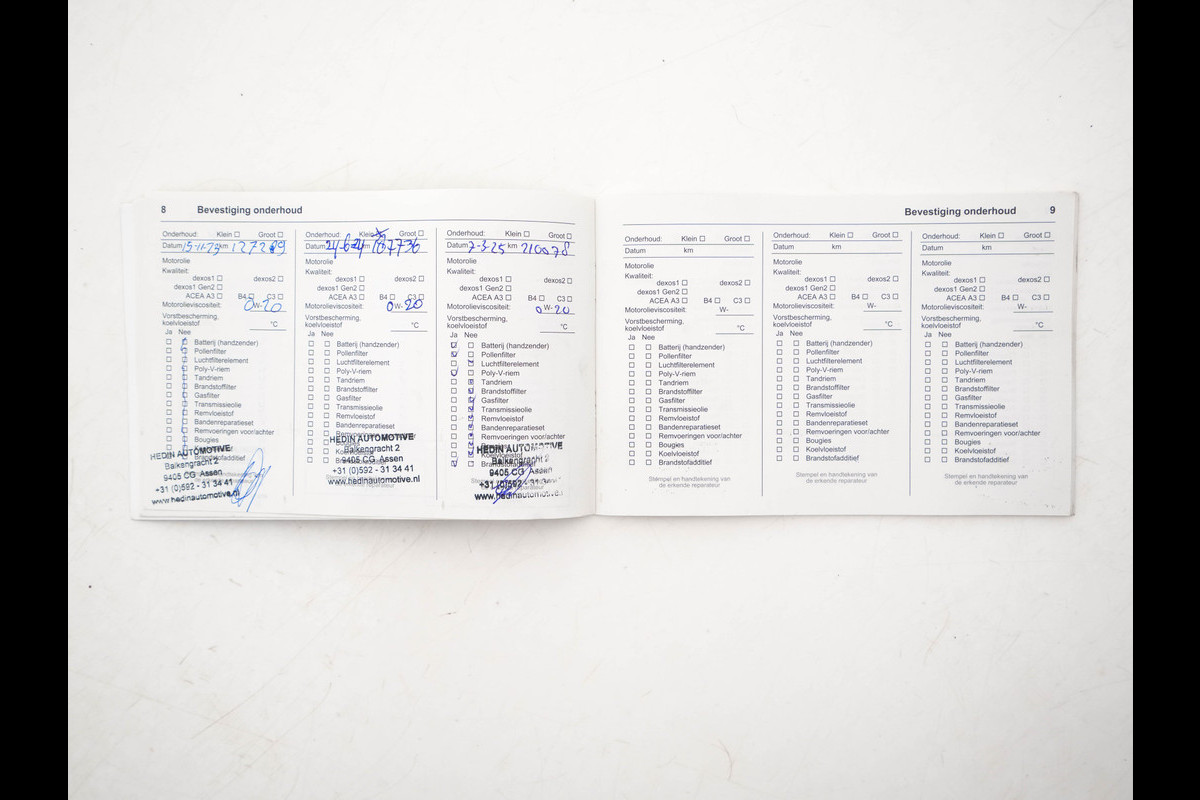 8 Bevestiging onderhoud
Onderhoud: Klein ☐ Groot ☐
Datum 15-11-23 km 127289
Motorolie
Kwaliteit:
dexos1 ☐ dexos2 ☐
dexos1 Gen2 ☐
ACEA A3 ☐ B4 ☐ C3 ☐
Motorolieviscositeit: 0W-20
Vorstbescherming,
koelvloeistof °C
Ja Nee
Batterij (handzender)
Pollenfilter
Luchtfilterelement
Poly-V-riem
Tandriem
Brandstoffilter
Gasfilter
Transmissieolie
Remvloeistof
Bandenreparatieset
Remvoeringen voor/achter
Bougies
HEDIN AUTOMOTIVE
Balkengracht 2
9405 CG Assen
+31 (0)592 - 31 34 41
www.hedinautomotive.nl
Onderhoud: Klein Groot ☐
Datum 24-6-24 km 167736
Motorolie
Kwaliteit:
dexos1 ☐ dexos2 ☐
dexos1 Gen2 ☐
ACEA A3 ☐ B4 ☐ C3 ☐
Motorolieviscositeit: 0W-20
Vorstbescherming,
koelvloeistof °C
Ja Nee
Batterij (handzender)
Pollenfilter
Luchtfilterelement
Poly-V-riem
Tandriem
Brandstoffilter
Gasfilter
Transmissieolie
Remvloeistof
Bandenreparatieset
Remvoeringen voor/achter
HEDIN AUTOMOTIVE
Balkengracht 2
9405 CG Assen
+31 (0)592 - 31 34 41
www.hedinautomotive.nl
Onderhoud: Klein ☐ Groot ☐
Datum 7-3-25 km 210078
Motorolie
Kwaliteit:
dexos1 ☐ dexos2 ☐
dexos1 Gen2 ☐
ACEA A3 ☐ B4 ☐ C3 ☐
Motorolieviscositeit: 0W-20
Vorstbescherming,
koelvloeistof °C
Ja Nee
Batterij (handzender)
Pollenfilter
Luchtfilterelement
Poly-V-riem
Tandriem
Brandstoffilter
Gasfilter
Transmissieolie
Remvloeistof
Bandenreparatieset
Remvoeringen voor/achter
HEDIN AUTOMOTIVE
Balkengracht 2
9405 CG Assen
www.hedinautomotive.nl
Bevestiging onderhoud 9
Onderhoud: Klein ☐ Groot ☐
Datum km
Motorolie
Kwaliteit:
dexos1 ☐ dexos2 ☐
dexos1 Gen2 ☐
ACEA A3 ☐ B4 ☐ C3 ☐
Motorolieviscositeit: W-
Vorstbescherming,
koelvloeistof °C
Ja Nee
☐ ☐ Batterij (handzender)
☐ ☐ Pollenfilter
☐ ☐ Luchtfilterelement
☐ ☐ Poly-V-riem
☐ ☐ Tandriem
☐ ☐ Brandstoffilter
☐ ☐ Gasfilter
☐ ☐ Transmissieolie
☐ ☐ Remvloeistof
☐ ☐ Bandenreparatieset
☐ ☐ Remvoeringen voor/achter
☐ ☐ Bougies
☐ ☐ Koelvloeistof
☐ ☐ Brandstofadditief
Stempel en handtekening van
de erkende reparateur
Onderhoud: Klein ☐ Groot ☐
Datum km
Motorolie
Kwaliteit:
dexos1 ☐ dexos2 ☐
dexos1 Gen2 ☐
ACEA A3 ☐ B4 ☐ C3 ☐
Motorolieviscositeit: W-
Vorstbescherming,
koelvloeistof °C
Ja Nee
☐ ☐ Batterij (handzender)
☐ ☐ Pollenfilter
☐ ☐ Luchtfilterelement
☐ ☐ Poly-V-riem
☐ ☐ Tandriem
☐ ☐ Brandstoffilter
☐ ☐ Gasfilter
☐ ☐ Transmissieolie
☐ ☐ Remvloeistof
☐ ☐ Bandenreparatieset
☐ ☐ Remvoeringen voor/achter
☐ ☐ Bougies
☐ ☐ Koelvloeistof
☐ ☐ Brandstofadditief
Stempel en handtekening van
de erkende reparateur
Onderhoud: Klein ☐ Groot ☐
Datum km
Motorolie
Kwaliteit:
dexos1 ☐ dexos2 ☐
dexos1 Gen2 ☐
ACEA A3 ☐ B4 ☐ C3 ☐
Motorolieviscositeit: W-
Vorstbescherming,
koelvloeistof °C
Ja Nee
☐ ☐ Batterij (handzender)
☐ ☐ Pollenfilter
☐ ☐ Luchtfilterelement
☐ ☐ Poly-V-riem
☐ ☐ Tandriem
☐ ☐ Brandstoffilter
☐ ☐ Gasfilter
☐ ☐ Transmissieolie
☐ ☐ Remvloeistof
☐ ☐ Bandenreparatieset
☐ ☐ Remvoeringen voor/achter
☐ ☐ Bougies
☐ ☐ Koelvloeistof
☐ ☐ Brandstofadditief
Stempel en handtekening van
de erkende reparateur